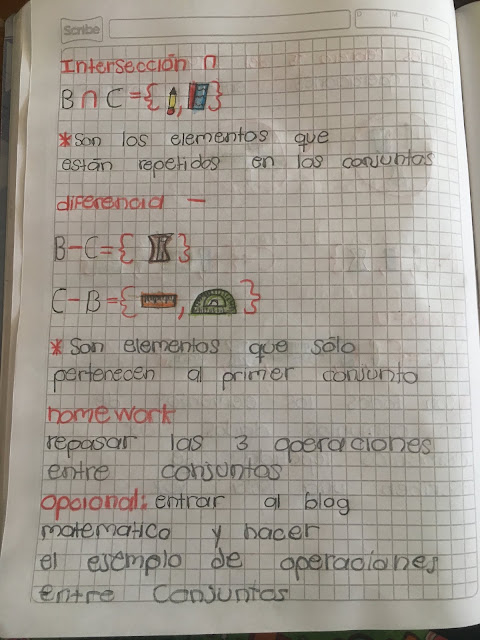 Scribe
Intersección ∩
B ∩ C = { , }
*Son los elementos que
están repetidos en los conjuntos
diferencia —
B - C = { }
C - B = { , }
*Son elementos que sólo
pertenecen al primer conjunto
homework
repasar las 3 operaciones
entre conjuntos
opcional: entrar al blog
matematico y hacer
el esemplo de operaciones
entre conjuntos